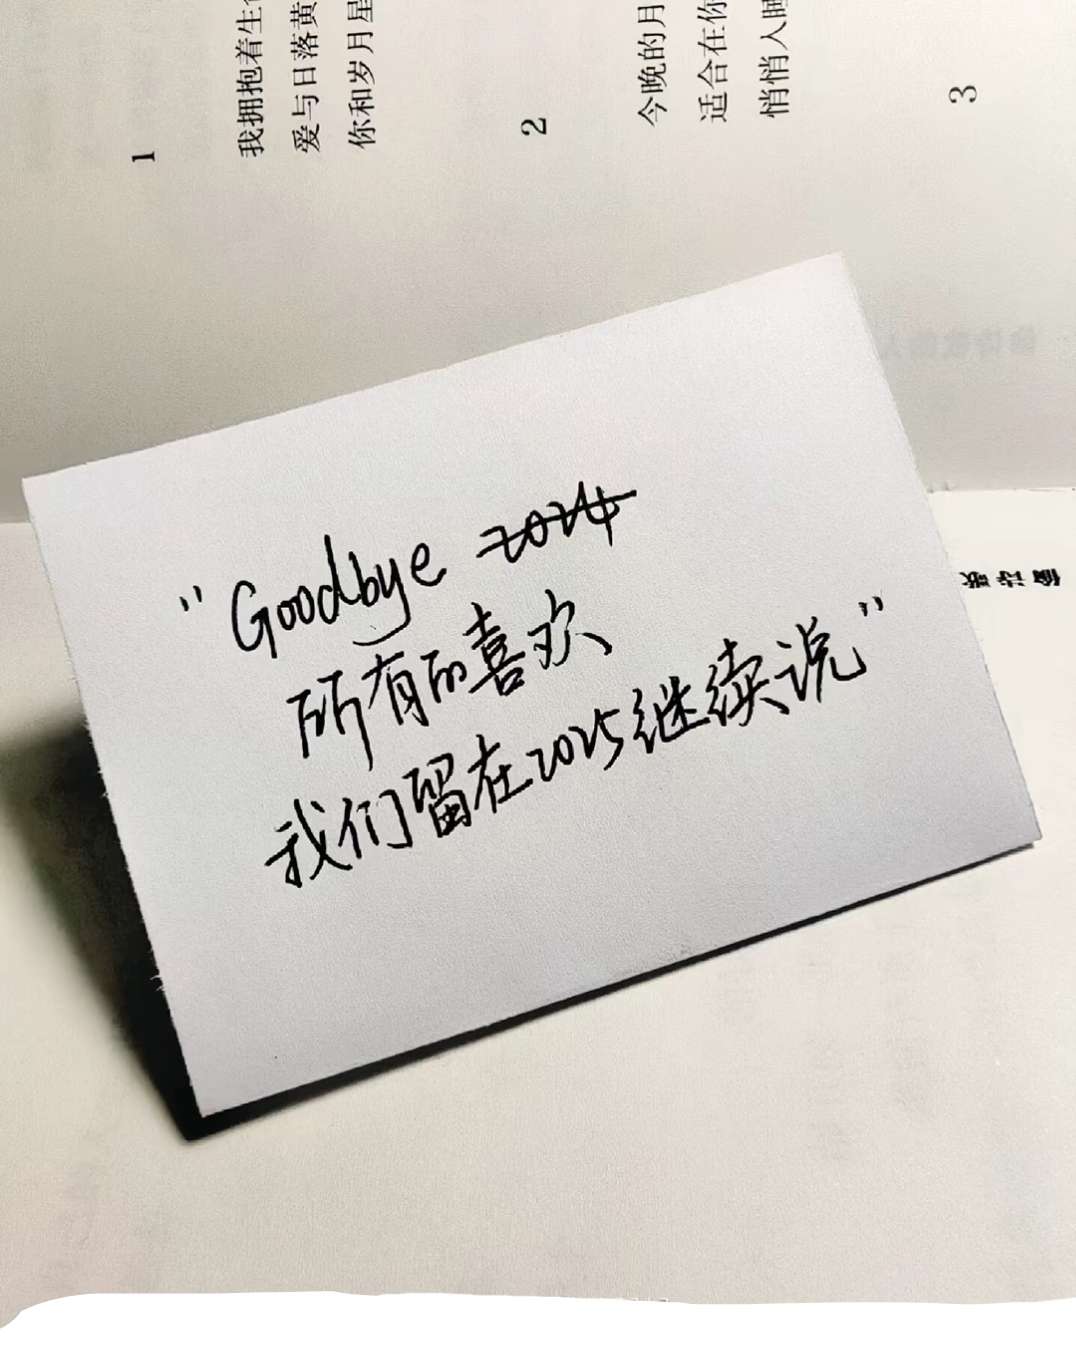 1
我拥抱着生
爱与日落黄
你和岁月星
2
今晚的月
适合在你
悄悄入睡
3
偷诗歌
"Goodbye 2024
所有的喜欢
我们留在2025继续说"